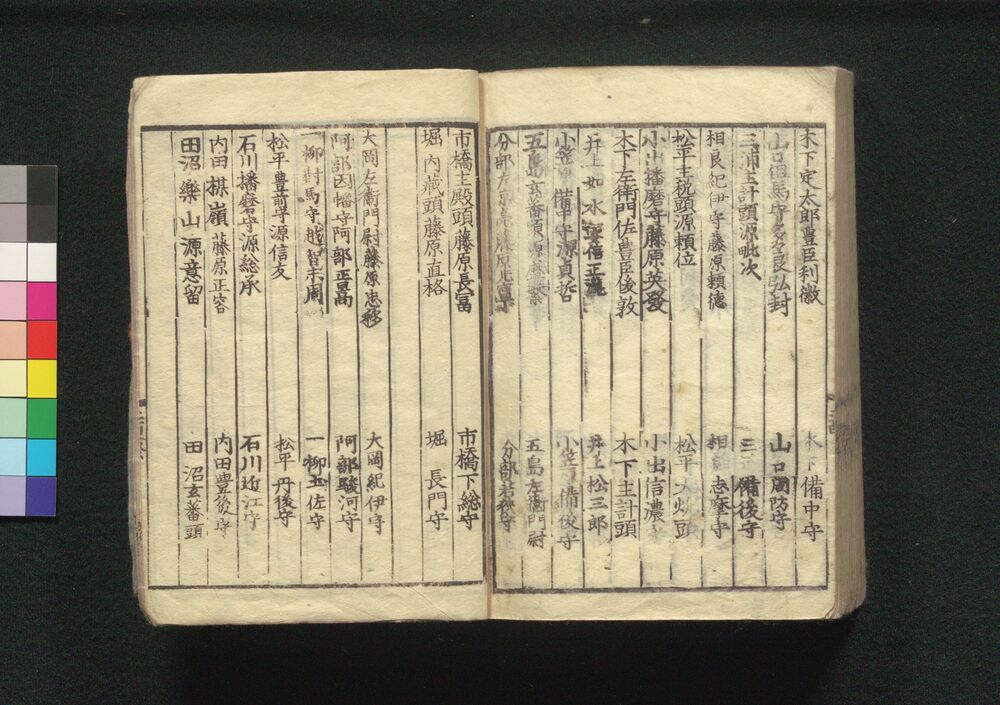 木下定太郎豊臣利徽　木下備中守
山口但馬守多々良弘封　山口周防守
三浦主計頭源毗次　三浦備後守
相良紀伊守藤原頼徳　相良志摩守
松平主税頭源頼位　松平大炊頭
小出播磨守藤原英發　小出信濃守
木下左衛門佐豊臣俊敦　木下主計頭
井上如水源信正瀧　井上松三郎
小笠原備中守源貞哲　小笠原備後守
五島玄蕃頭源盛繁　五島左衛門尉
分部左京亮藤原光寧　分部若狭守
市橋主殿頭藤原長富　市橋下総守
堀内蔵頭藤原直格　堀長門守
大岡左衛門尉藤原忠移　大岡紀伊守
阿部因幡守阿部正暠　阿部駿河守
一柳対馬守越智末周　一柳土佐守
松平豊前守源信友　松平丹後守
石川播磨守源総承　石川近江守
内田楳嶺藤原正容　内田豊後守
田沼樂山源意留　田沼玄蕃頭